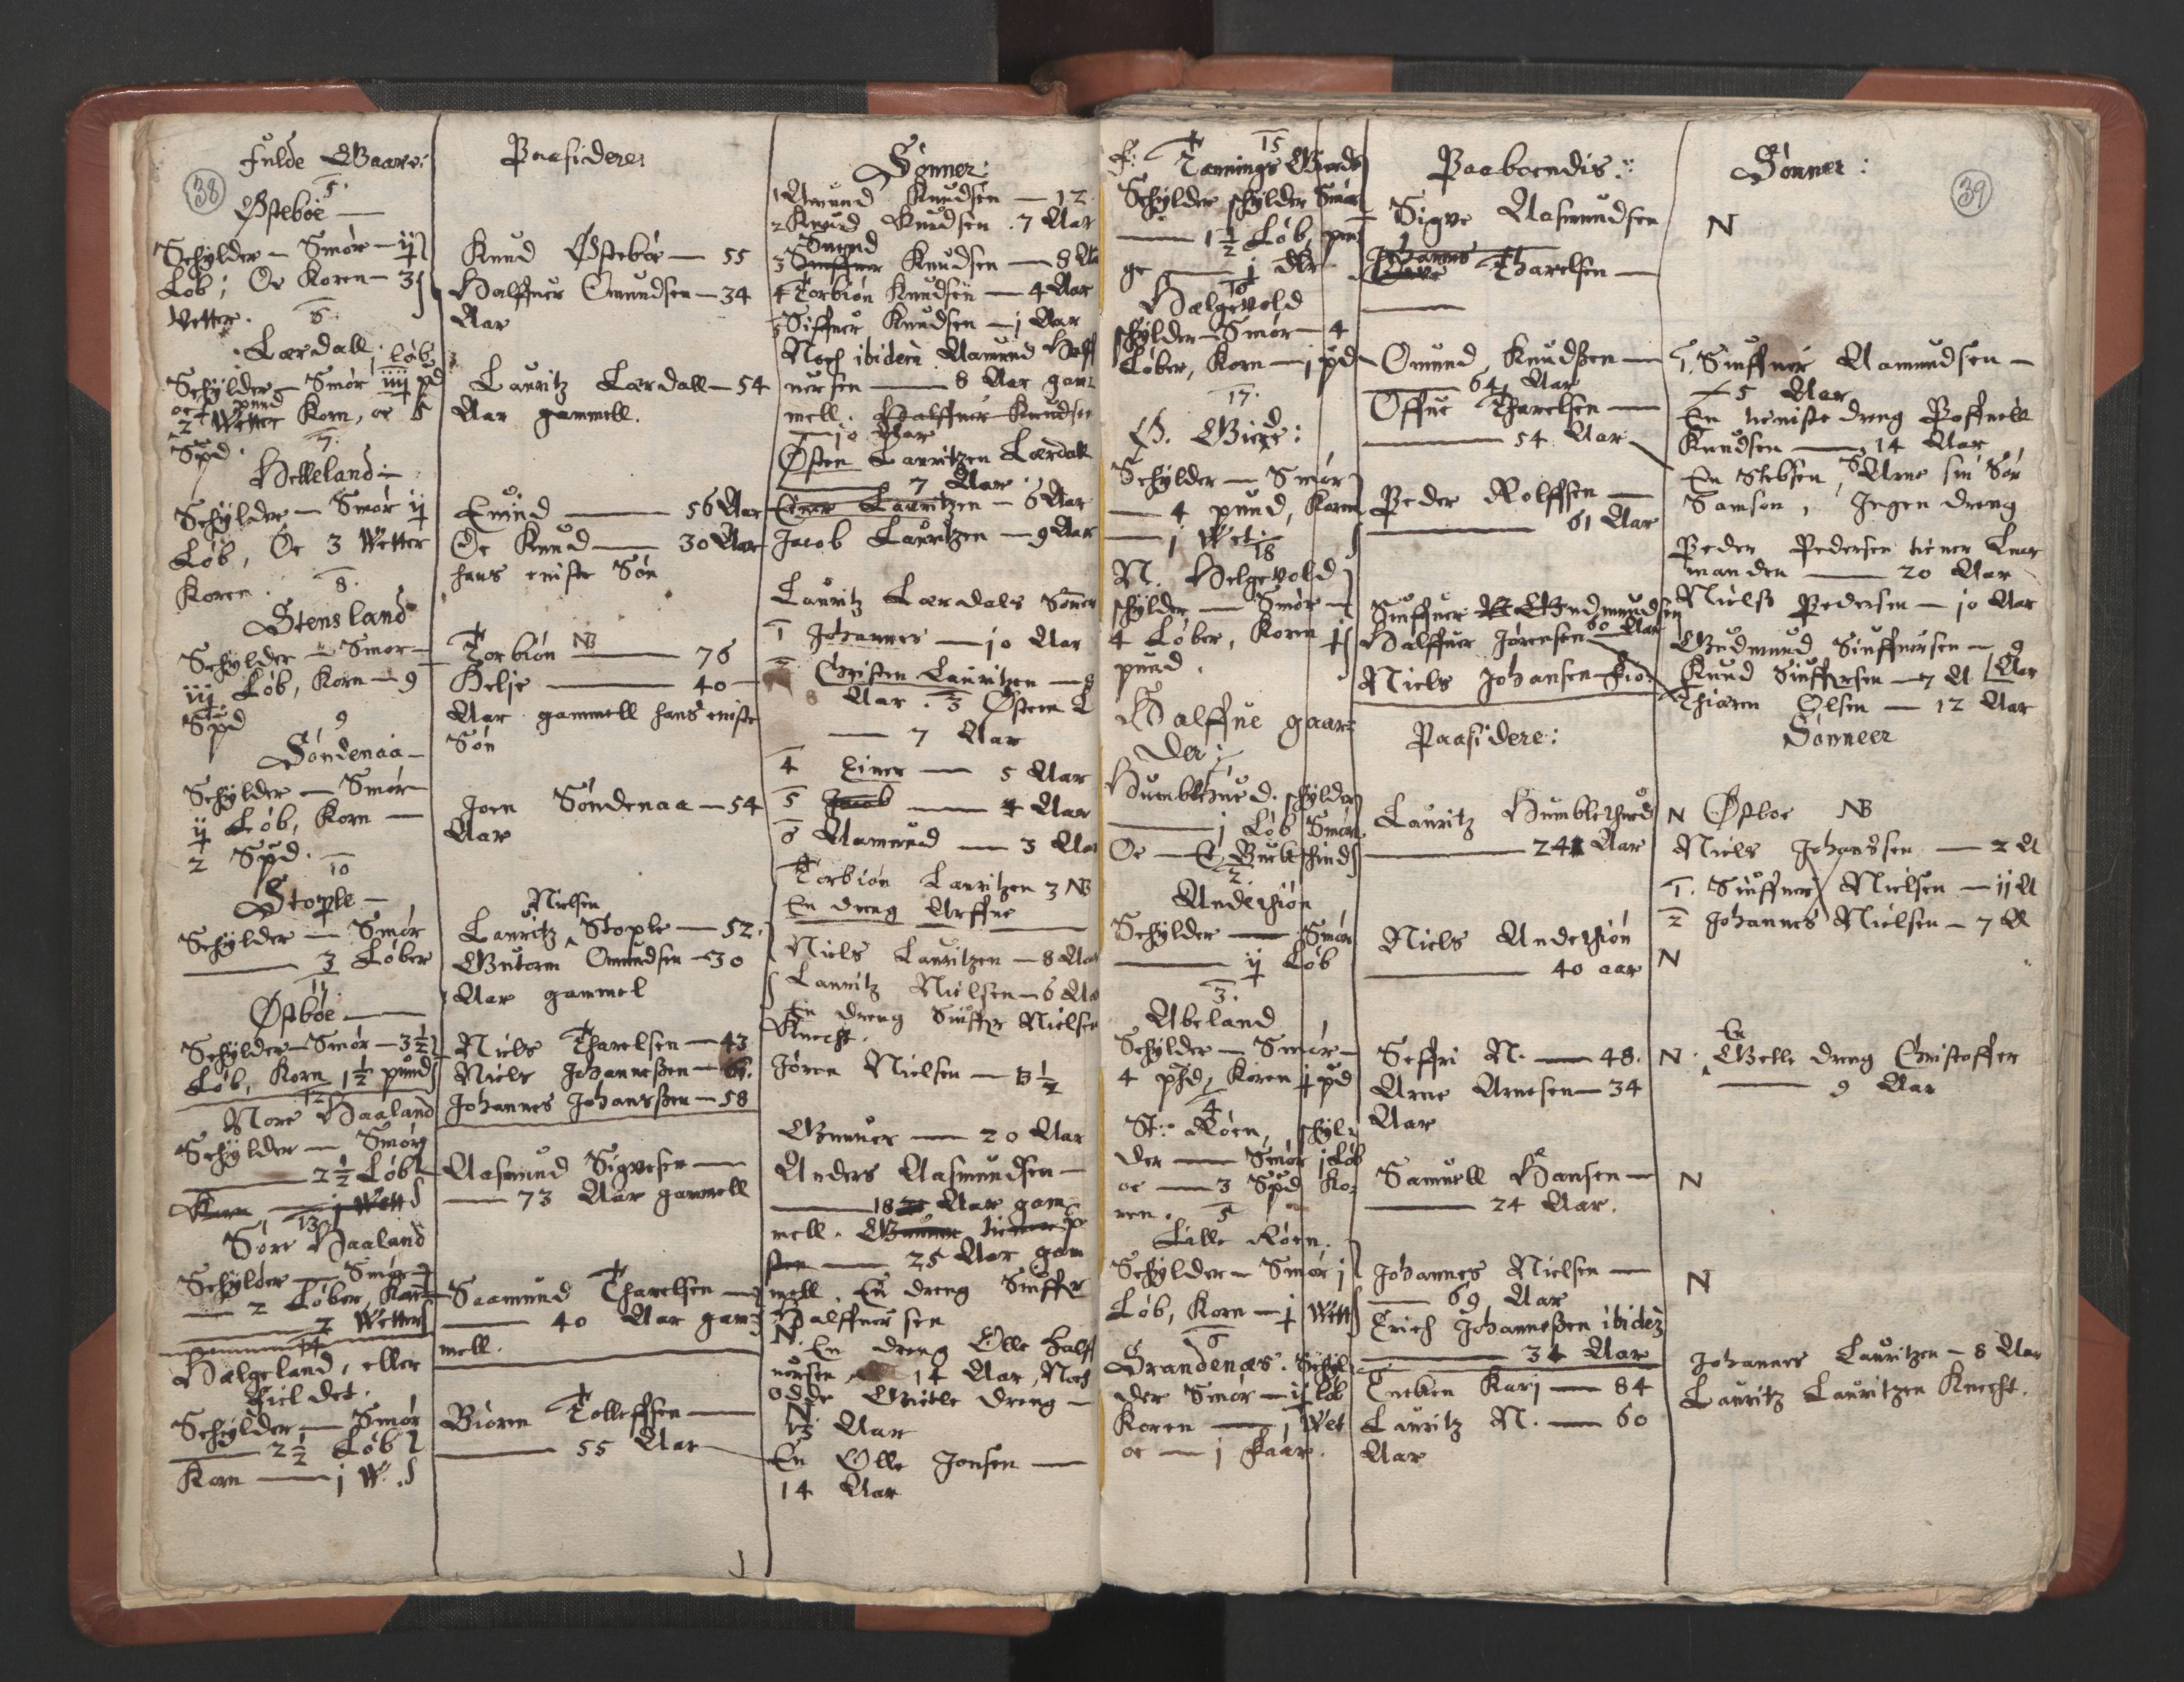 38
Fulde Gaare:
5.
Østebøe —
Schÿlder — Smør — ij
Løb; Oc Koren — 3
Vetter.
6.
Lærdall.
Schÿlder — Smør iiij pd
Korn, oc
Spd.
7.
Helleland —
Schÿlder — Smør ij
Løb, Oc 3 Wetter
Koren.
8.
Stensland
Schÿlder — Smør —
iij Løb, Korn — 9
Spd
9
Søndenaa —
Schÿlder — Smør —
ij Løb, Korn —
2 Spd.
10
Stople —
Schÿlder — Smør
— 3 Løber
11.
Østbøe —
Schÿlder — Smør — 3½
Løb, Korn 1½ pund
12
Nore Haaland
Schÿlder — Smørs
— 2½ Løb
Korn — j Wett
13
Søre Haaland
Schÿlder — Smør
— 2 Løber, Kor
— 2 Wetter
14
Hælgeland, eller
Fieldet.
Schÿlder — Smør
— 2½ Løb
Korn — j W.
Paasidere:
Knud Østebøe — 55
Halffuer Omundsen — 34
Aar
Lauritz Lærdall — 54
Aar gammell.
Emund — 56 Aar
Oc Knud — 30 Aar
hans eniste Søn
Torbiøn NB — 76
Helje — 40
Aar gammell hans eniste
Søn
Joen Søndenaa — 54
Aar
Nielsen
Lauritz Stople — 52.
Gutorm Omundsen — 30
Aar gammel
Niels Tharelsen — 43
Niels Johannessen —
Johannes Johanssen — 58
Aasmund Sigvesen —
— 73 Aar gammell
Saamund Tharelsen —
— 40 Aar gam
mell.
Biøren Tolleffsen —
— 55 Aar
Sønner:
1 Amund Knudsen — 12
2 Knud Knudsen . 7 Aar
3 Knudsen — 8 Aa
4 Torbiøn Knudsen — 4 Aar
5 Siffuer Knudsen — j Aar
Noch ibidem Aamund Halff
uersen — 8 Aar gam
mell. Halffuer Knudsen
— 10 Aar
Østen Lauritzen Lærdall
— 7 Aar
Einer Lauritzen — 6 Aar
Jacob Lauritzen — 9 Aar
Lauritz Lærdals Sønner
1 Johannes — 10 Aar
2 Christen Lauritzen — 8
Aar. 3 Østen L
— 7 Aar
4 Einer — 5 Aar
5 Jacob — 4 Aar
6 Aamund — 3 Aa
Torbiøn Lauritzen 3 NB
En dreng Arffue
Niels Lauritzen — 8 Aar
Lauritz Nielsen — 6 Aa
En dreng Siuffr Nielsen
Knecht.
Jøren Nielsen — 8½
Gunner — 20 Aar
Anders Aasmundsen —
— 18 Aar gam
mell.
— 25 Aar gam
mell. En dreng Siuffer
Halffuersen
N. En dreng Olle Half
uersen 14 Aar, Noch
odde Gritle dreng —
N. 13 Aar
En Olle Jonsen —
14 Aar
39
15
Tennings Gierde
Schÿlder schÿlder Smør
— 1½ Løb, pen
ge — j dlr
16
Hælgevold
schÿlder Smør — 4
Løber, Korn — j pd
17.
Ø. Gierde:
Schÿlder — Smør
— 4 pund, Korn
— j Wet:
18
N. Helgevold
schÿlder — Smør —
4 Løber, Korn j
pund.
Halffue gaar
der:
1
schÿlder
— j Løb Smør
Oc — E. Buckschind
2
Andersiøn
Schÿlder — Smør
— ij Løb
3.
Abeland
Schÿlder — Smør —
4 phd, Koren j pd
4
St: Røen, schÿl
der — Smør j Løb
oc — 3 Spd Ko
ren.
5
Lille Røen.
Schÿlder — Smør j
Løb, Korn — j Wett
6
Grandenæs. Schÿl
der Smør — ij Løb
Koren — 1 Wet
oc — j faar.
Paaboendis:
Sigve Aasmundsen
Tharelsen —
Omund Knudssen —
— 64 Aar
Offue Tharelsen —
— 54 Aar
Peder Rolffsen —
— 61 Aar
Siuffuer Gudmundsen
60 Aar
Halffuer Jørensen
Niels Johansen
Paasidere:
Lauritz
— 24 Aar
Niels Andersiøn
— 40 aar
Seffri N. — 48.
Arne Arnesen — 34
Aar
Samuell Hansen —
— 24 Aar.
Johannes Nielsen —
— 69 Aar
Erich Johannessen ibidem
— 34 Aar
Encken Karj — 84
Lauritz N. — 60
Aar
Sønner:
N
1. Siuffuer Aamundsen —
5 Aar
En tieniste dreng Poffuell
Knudsen — 14 Aar
En Stebsen, Arne sin Søn
Samson, Ingen dreng
Peder Pedersen tiener Lens
manden — 20 Aar
Niels Pedersen — 10 Aar
Gudmund Siuffuersen — 9
Aar
Knud Siuffersen — 7 A
Thiøren Olsen — 12 Aar
Sønneer
N Østboe NB
Niels Johanssen — 2 A
1. Siuffuer Nielsen — ij A
2 Johannes Nielsen — 7 A
N
N. En
Gelle dreng Christoffer
— 9 Aar
N
N
Johannes Lauritzen — 8 Aar
Lauritz Lauritzen Knecht.